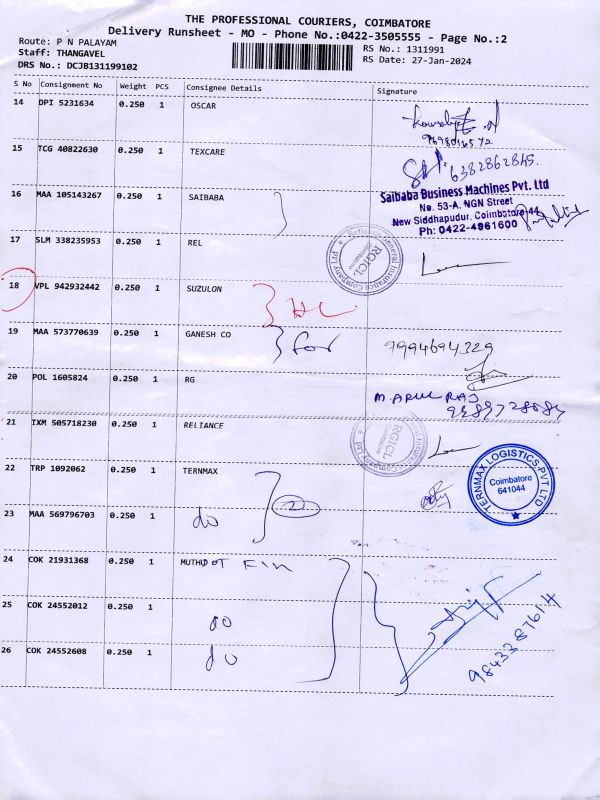 THE PROFESSIONAL COURIERS, COIMBATORE
Delivery Runsheet - MO - Phone No.:0422-3505555 - Page No.:2
Route: P N PALAYAM
RS No.: 1311991
Staff: THANGAVEL
RS Date: 27-Jan-2024
DRS No.: DCJB131199102
S No Consignment No Weight PCS Consignee Details Signature
14 DPI 5231634 0.250 1 OSCAR
15 TCG 40822630 0.250 1 TEXCARE
6382862845.
16 MAA 105143267 0.250 1 SAIBABA
Saibaba Business Machines Pvt. Ltd
No. 53-A, NGN Street
New Siddhapudur, Coimbatore-44
Ph: 0422-4961600
17 SLM 338235953 0.250 1 REL
Reliance General Insurance Company Ltd
RGICL
Coimbatore
18 VPL 942932442 0.250 1 SUZULON
19 MAA 573770639 0.250 1 GANESH CO
for
9994694329
20 POL 1605824 0.250 1 RG
M. ARUL RAJ
21 IXM 505718230 0.250 1 RELIANCE
RGICL
Coimbatore
22 TRP 1092062 0.250 1 TERNMAX
2
TERNMAX LOGISTICS PVT LTD
Coimbatore
641044
23 MAA 569796703 0.250 1 do
24 COK 21931368 0.250 1 MUTHOOT FIN
25 COK 24552012 0.250 1 do
26 COK 24552608 0.250 1 do
9843387614